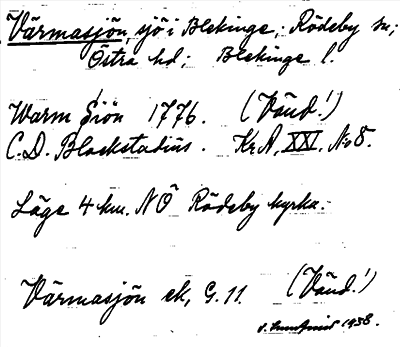 Värmasjön, sjö i Blekinge; Rödeby sn;
Östra hd; Blekinge l.
Warm Siön 1776. (Vänd!)
C.D. Blockstadius. Kr.A, XXI, No 8.
Läge 4 km. NÖ Rödeby kyrka.
Värmasjön ek, G. 11. (Vänd!)
1938.